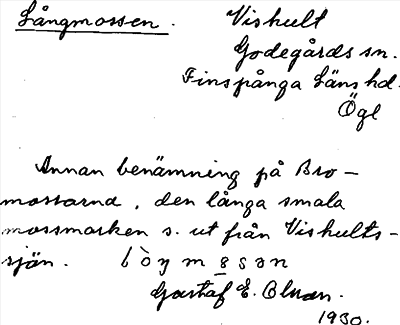 Långmossen. Vishult
Godegårds sn.
Finspånga Läns hd.
Ögl
Annan benämning på Bro-
mossarna, den långa smala
mossmarken s. ut från Vishults-
sjön.
Gustaf E.
1930.